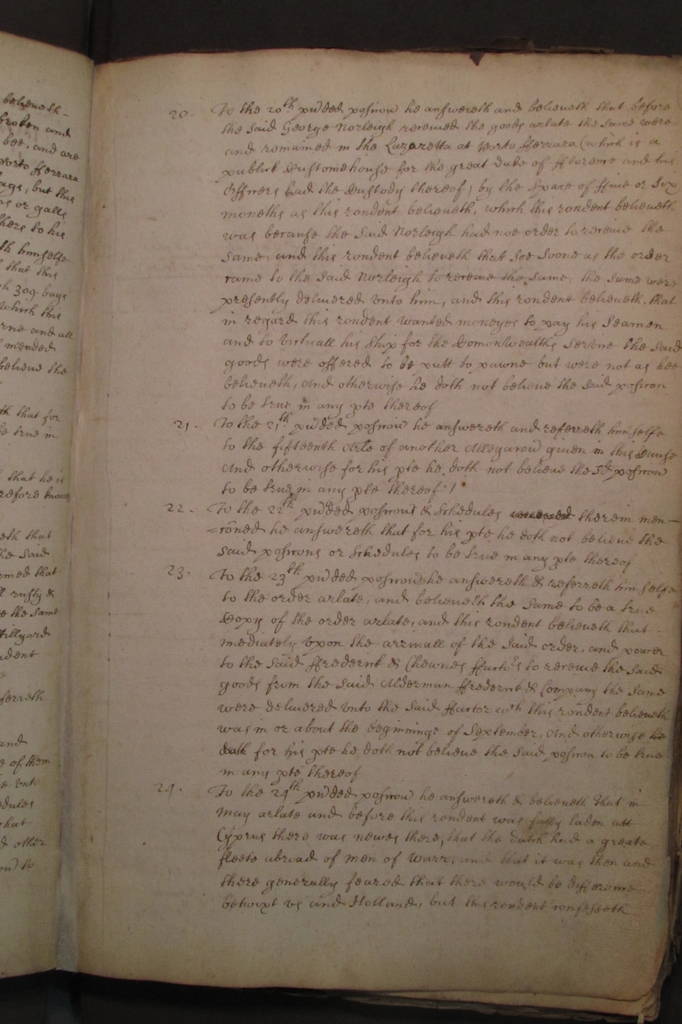 believeth
broken and
bee, and are
porto fferrara
bags, but this
as or galls
there to his
th himselfe
that this
h 309 bags
which this
rne and all
mended
believe the
th that for
be true in
that he is
refore
eth that
he said
rmed that
rusty &
e the same
Stillyard
ndent
fferreth
and
e of them
e unto
dules
that
d other
to
20. To the 20th pr'ded posicon he answereth and believeth that before
the said George Norleigh received the goods arlate the same were
and remained in the Lazaretta at Porto fferrara (which is a
publick Customehouse for the great Duke of fflorence and his
Officers had the Custody thereof) by the space of ffive or Six
moneths as this rondent believeth, which this rondent believeth
was because the said Norleigh had not order to receive the
same, and this rondent believeth that soe soone as the order
came to the said Norleigh to receive the same, the same were
presently delivered unto him, and this rondent believeth that
in regard this rondent wanted moneyes to pay his Seamen
and to victuall his ship for the Comonwealths Service the said
goods were offered to be putt to pawne but were not as hee
believeth, And otherwise he doth not believe the said posicon
to be true in any pte thereof
21. To the 21th pr'ded posicon he answereth and referreth himselfe
to the fifteenth Arle of another Allegacon given in this Cause
And otherwise for his pte he doth not believe the sd posicon
to be true in any pte thereof /
22. To the 22th pr'ded posicons & Schedules therein men-
-coned he answereth that for his pte he doth not believe the
said posicons or schedules to be true in any pte thereof
23. To the 23th pr'ded posicon he answereth & referreth himselfe
to the order arlate, and believeth the same to be a true
Copy of the order arlate, and this rondent believeth that
mediately upon the arrivall of the said order, and power
to the said ffredernt & Chownes ffactors to receive the said
goods from the said Alderman ffredernt & Company the same
were delivered unto the said ffactor wch this rondent believeth
was in or about the beginninge of September, And otherwise he
doth for his pte he doth not believe the said posicon to be true
in any pte thereof
24. To the 24th pr'ded posicon he answereth & believeth that in
May arlate and before this rondent was fully laden att
Cyprus there was newes there, that the dutch had a greate
fleete abroad of men of warr, and that it was then and
there generally feared that there would be difference
betwixt us and Holland, but this rondent confesseth